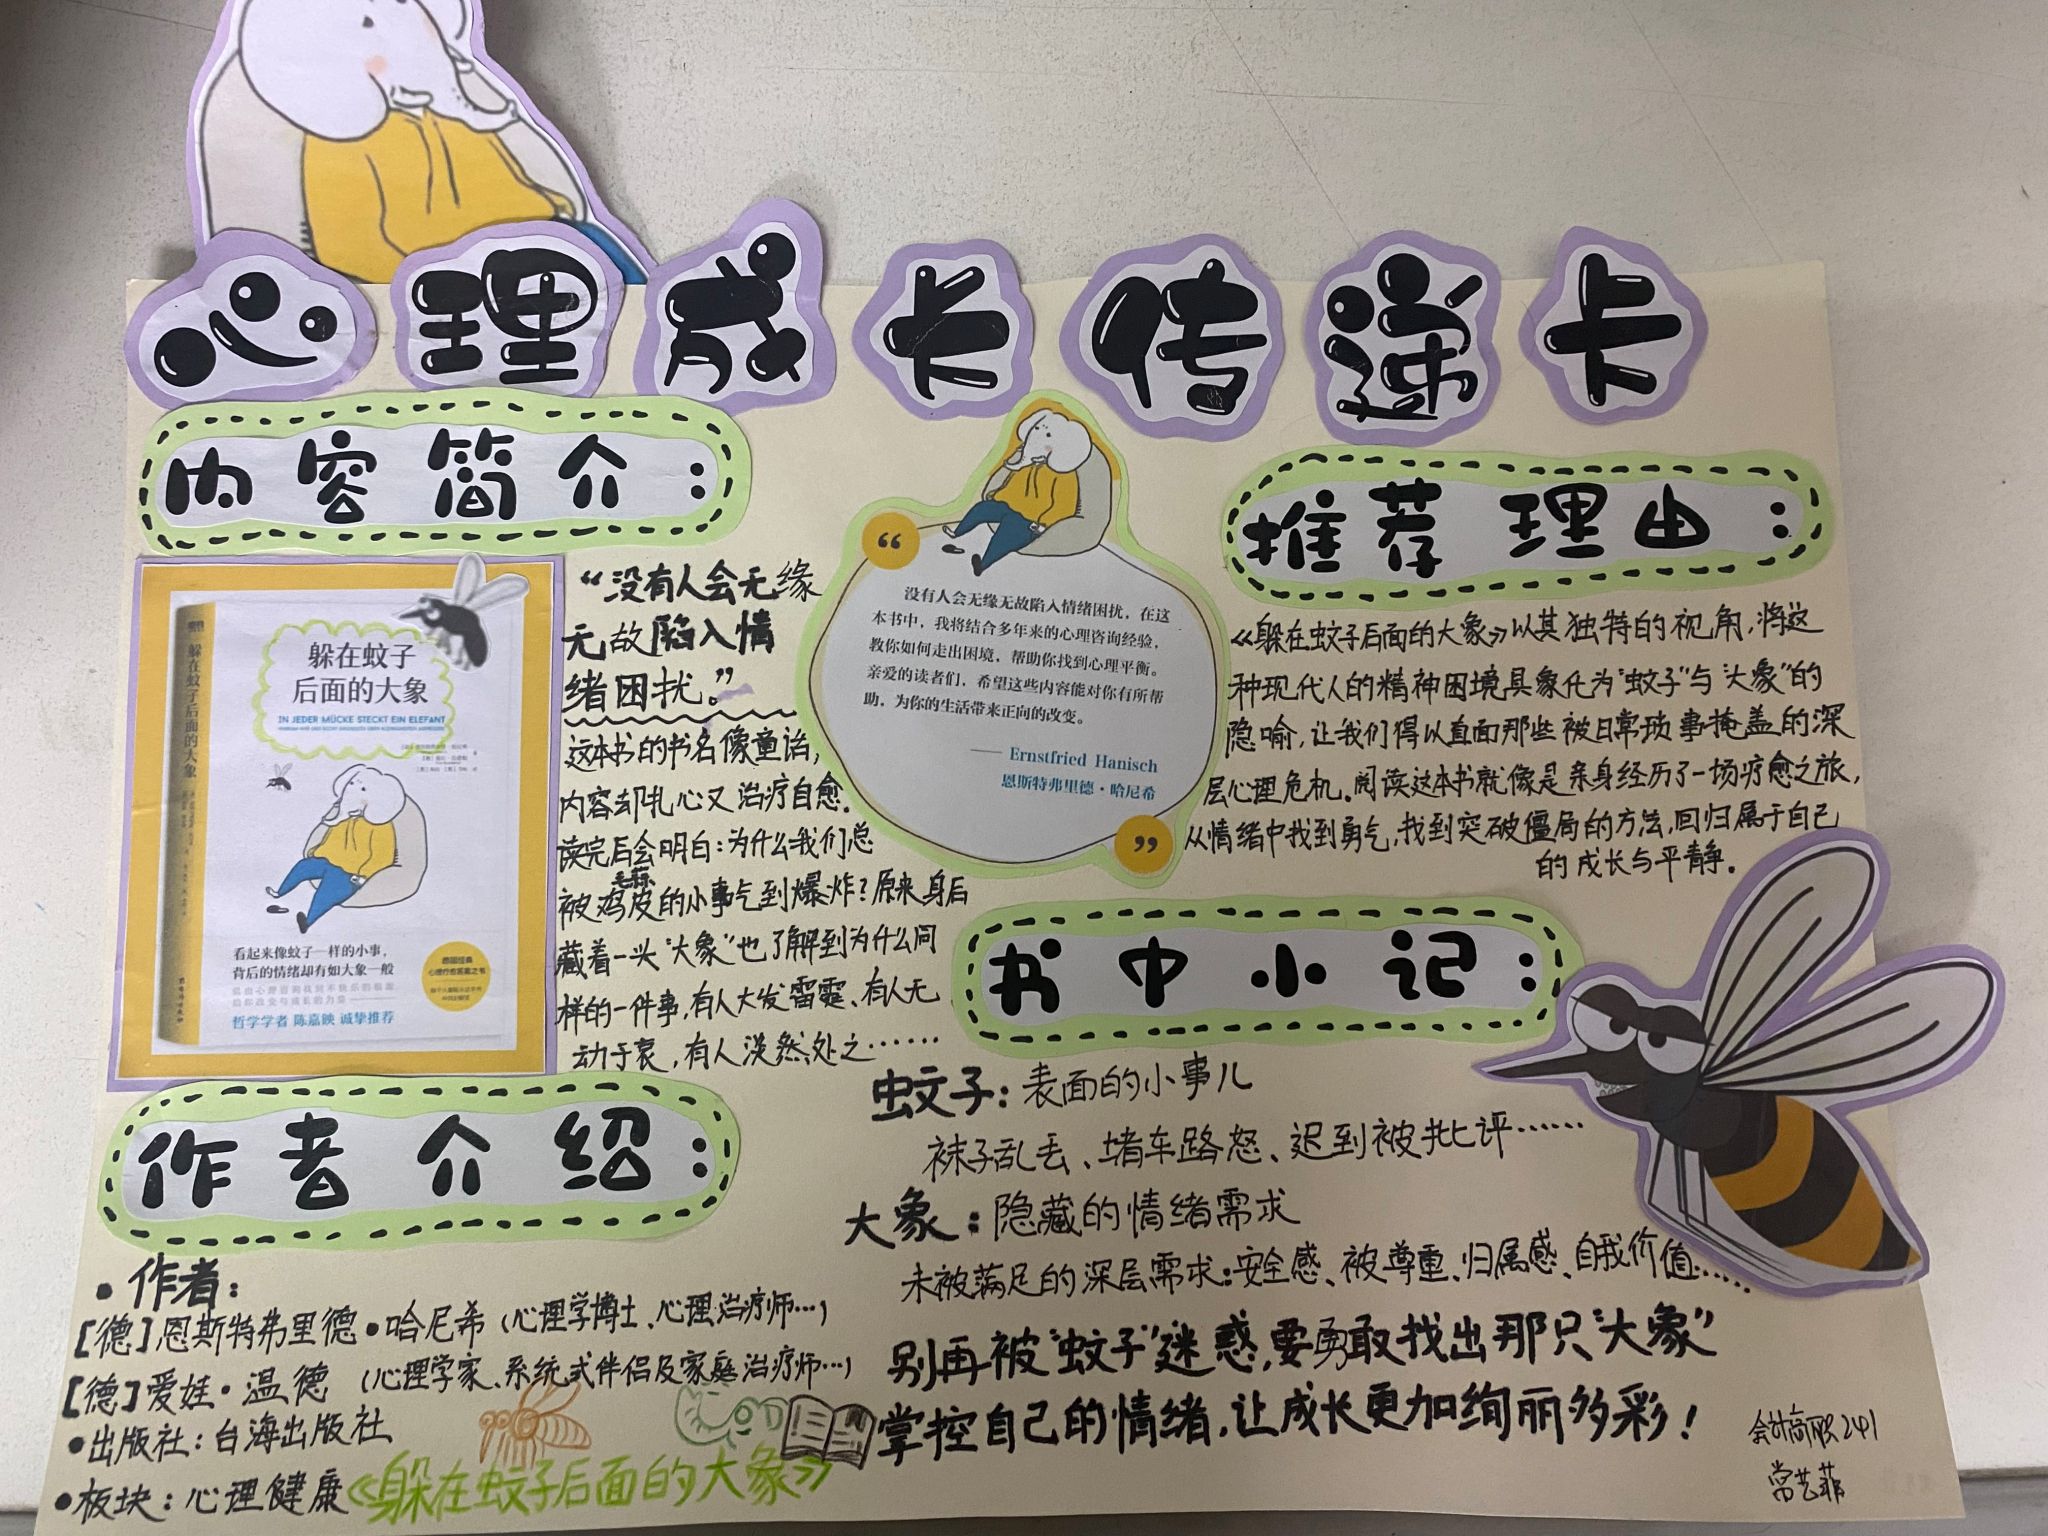 心理成长传递卡
内容简介：
躲在蚊子
后面的大象
IN JEDER MÜCKE STECKT EIN ELEFANT
躲在蚊子后面的大象
看起来像蚊子一样的小事，
背后的情绪却有如大象一般
哲学学者 陈嘉映 诚挚推荐
“没有人会无缘
无故陷入情
绪困扰。”
这本书的书名像童话，
内容却扎心又治疗自愈。
读完后会明白：为什么我们总
被鸡毛蒜皮的小事气到爆炸？原来身后
藏着一头“大象”也了解到为什么同
样的一件事，有人大发雷霆、有人无
动于衷，有人淡然处之……
“
没有人会无缘无故陷入情绪困扰，在这
本书中，我将结合多年来的心理咨询经验，
教你如何走出困境，帮助你找到心理平衡。
亲爱的读者们，希望这些内容能对你有所帮
助，为你的生活带来正向的改变。
—— Ernstfried Hanisch
恩斯特弗里德·哈尼希
”
推荐理由：
《躲在蚊子后面的大象》以其独特的视角，将这
种现代人的精神困境具象化为“蚊子”与“大象”的
隐喻，让我们得以直面那些被日常琐事掩盖的深
层心理危机。阅读这本书就像是亲身经历了一场疗愈之旅，
从情绪中找到勇气，找到突破僵局的方法，回归属于自己
的成长与平静。
书中小记：
蚊子：表面的小事儿
袜子乱丢、堵车路怒、迟到被批评……
大象：隐藏的情绪需求
未被满足的深层需求：安全感、被尊重、归属感、自我价值……
别再被“蚊子”迷惑，要勇敢找出那只“大象”
掌控自己的情绪，让成长更加绚丽多彩！
作者介绍：
•作者：
[德]恩斯特弗里德•哈尼希（心理学博士、心理治疗师…）
[德]爱娃·温德（心理学家、系统式伴侣及家庭治疗师…）
•出版社：台海出版社
•板块：心理健康
《躲在蚊子后面的大象》
会计高职241
常艺菲